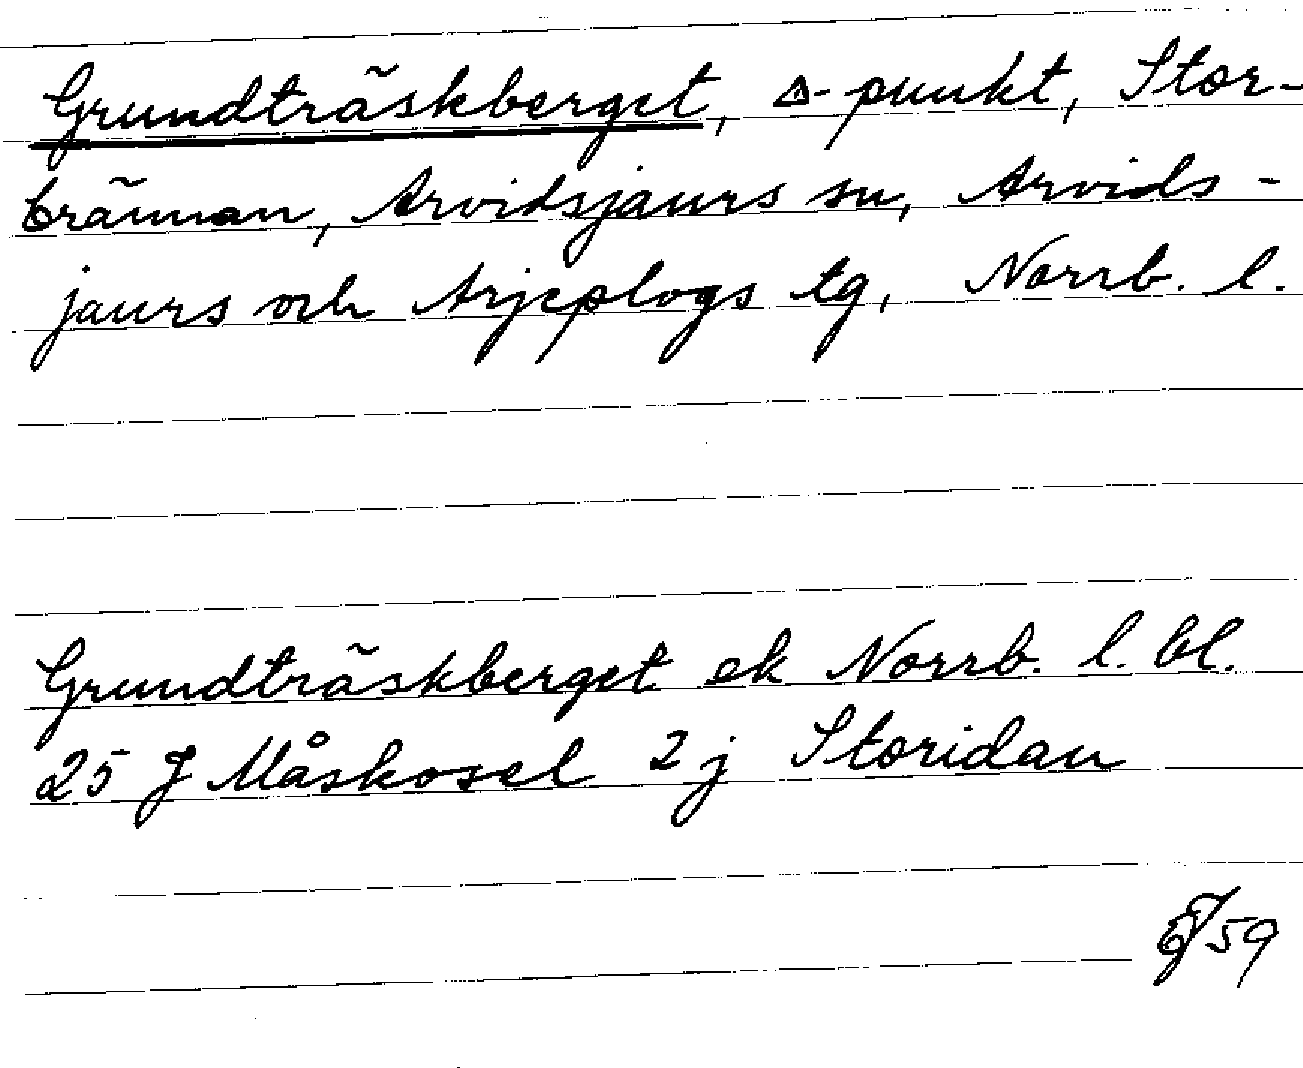 Grundträskberget, △-punkt, Stor-
brännan, Arvidsjaurs sn, Arvids-
jaurs och Arjeplogs tg, Norrb. l.
Grundträskberget ek Norrb. l. bl.
25 J Måskosel 2 j Storidan
59